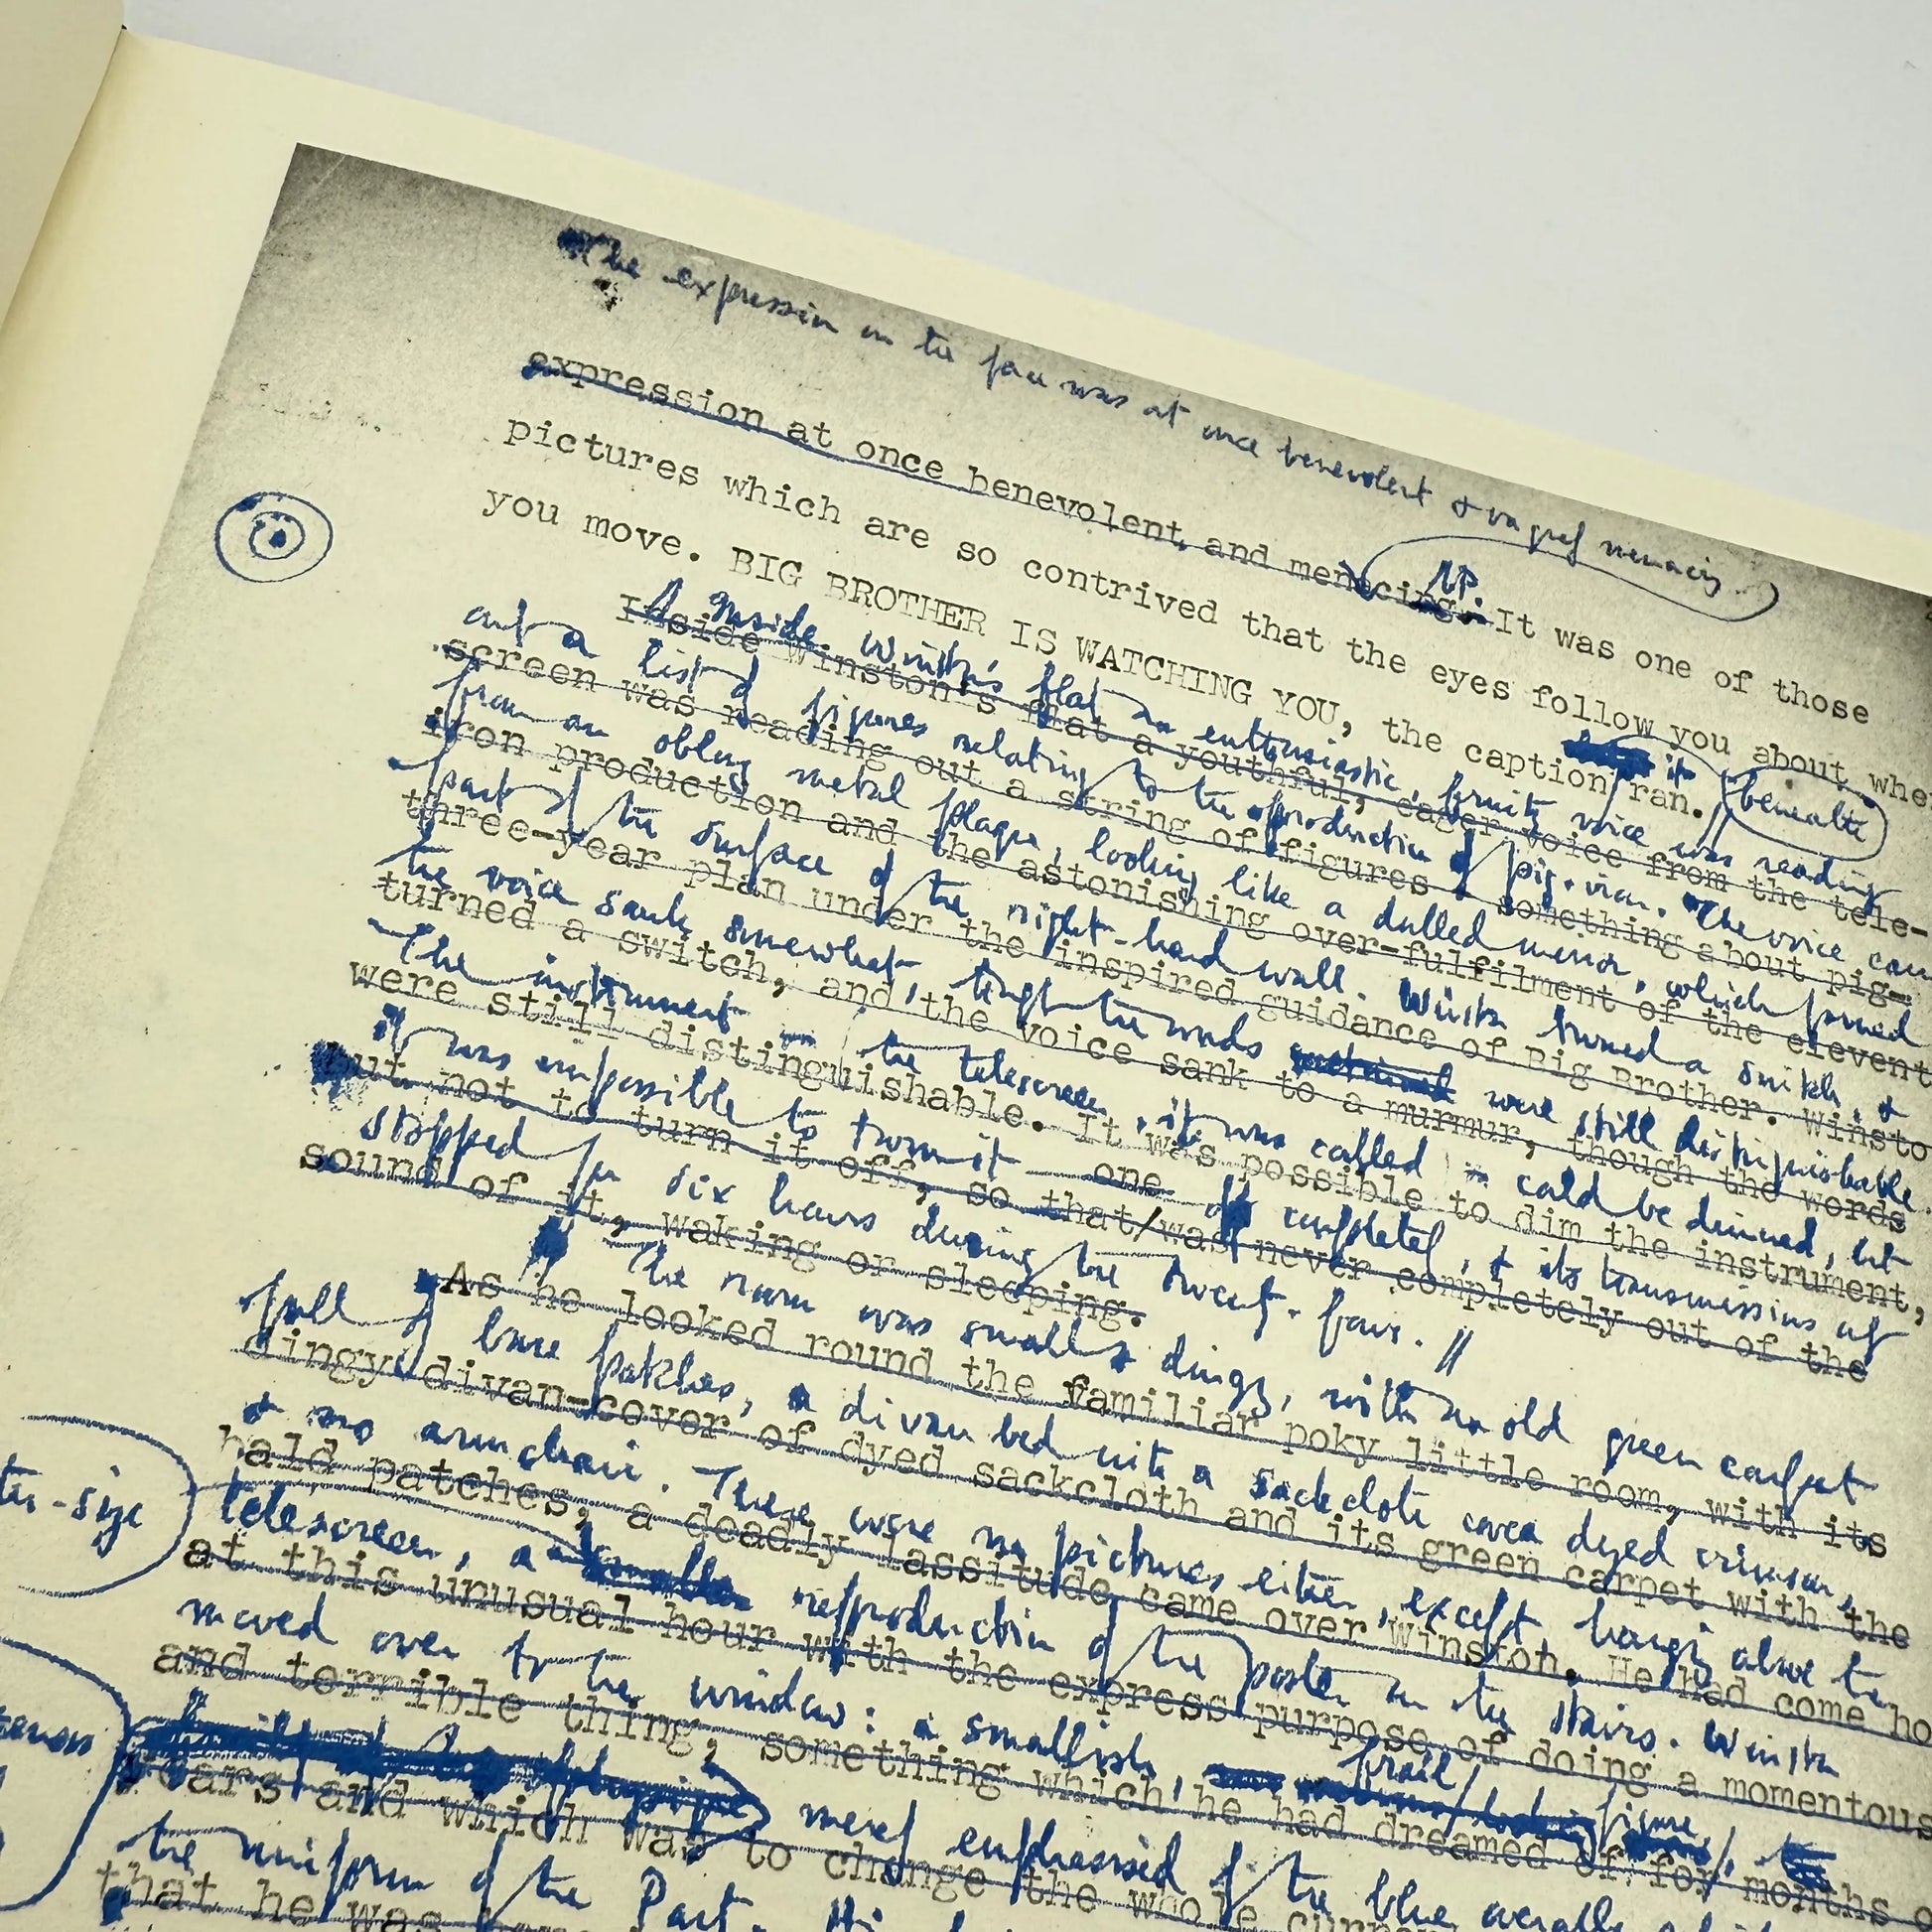 The expression on the face was at once benevolent & vaguely menacing.
expression at once benevolent and menacing. NP. It was one of those
pictures which are so contrived that the eyes follow you about when
you move. BIG BROTHER IS WATCHING YOU, the caption beneath it ran.
Inside Winston's flat an enthusiastic, fruity voice was reading
Inside Winston's flat a youthful, eager voice from the tele-
out a list of figures relating to the production of pig-iron. The voice came
screen was reading out a string of figures, something about pig-
from an oblong metal plaque, looking like a dulled mirror, which formed
iron production and the astonishing over-fulfilment of the elevent
part of the surface of the right-hand wall. Winston turned a switch, &
three-year plan under the inspired guidance of Big Brother. Winsto
the voice sank somewhat, though the words were still distinguishable.
turned a switch, and the voice sank to a murmur, though the words
The instrument (the telescreen, it was called) could be dimmed, but
were still distinguishable. It was possible to dim the instrument,
it was impossible to turn it off completely, & its transmissions only
but not to turn it off, so that/was never completely out of the
one
stopped for six hours during the twenty-four.
sound of it, waking or sleeping.
The room was small & dingy, with an old green carpet
As he looked round the familiar poky little room, with its
full of bare patches, a divan bed with a sackcloth cover dyed crimson,
dingy divan-cover of dyed sackcloth and its green carpet with the
& no armchair. There were no pictures either, except, hanging above the
bald patches, a deadly lassitude came over Winston. He had come ho
telescreen, a reproduction of the poster on the stairs. Winston
at this unusual hour with the express purpose of doing a momentous
moved over to the window: a smallish, frail figure,
and terrible thing, something which he had dreamed of for months
merely emphasised by the blue overalls
years and which was to change the whole
the uniform of the Party. His
that he was